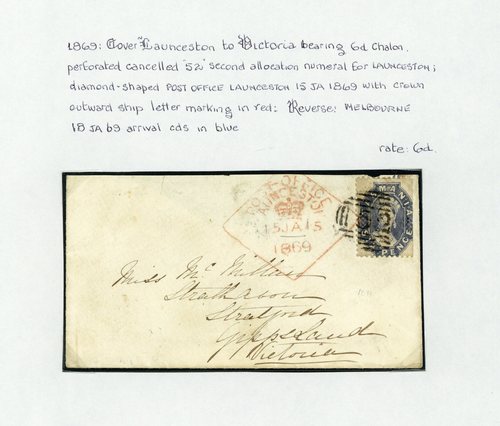 1869: Cover Launceston to Victoria bearing 6d Chalon,
perforated cancelled "52" second allocation numeral for LAUNCESTON;
diamond-shaped POST OFFICE LAUNCESTON 15 JA 1869 with crown
outward ship letter marking in red: Reverse: MELBOURNE
18 JA 69 arrival cds in blue
rate: 6d.
POST OFFICE
LAUNCESTON
15 JA 15
1869
MANIA
PENCE
Miss Mc Millan
Strathavon
Stratford
Gipps Land
Victoria